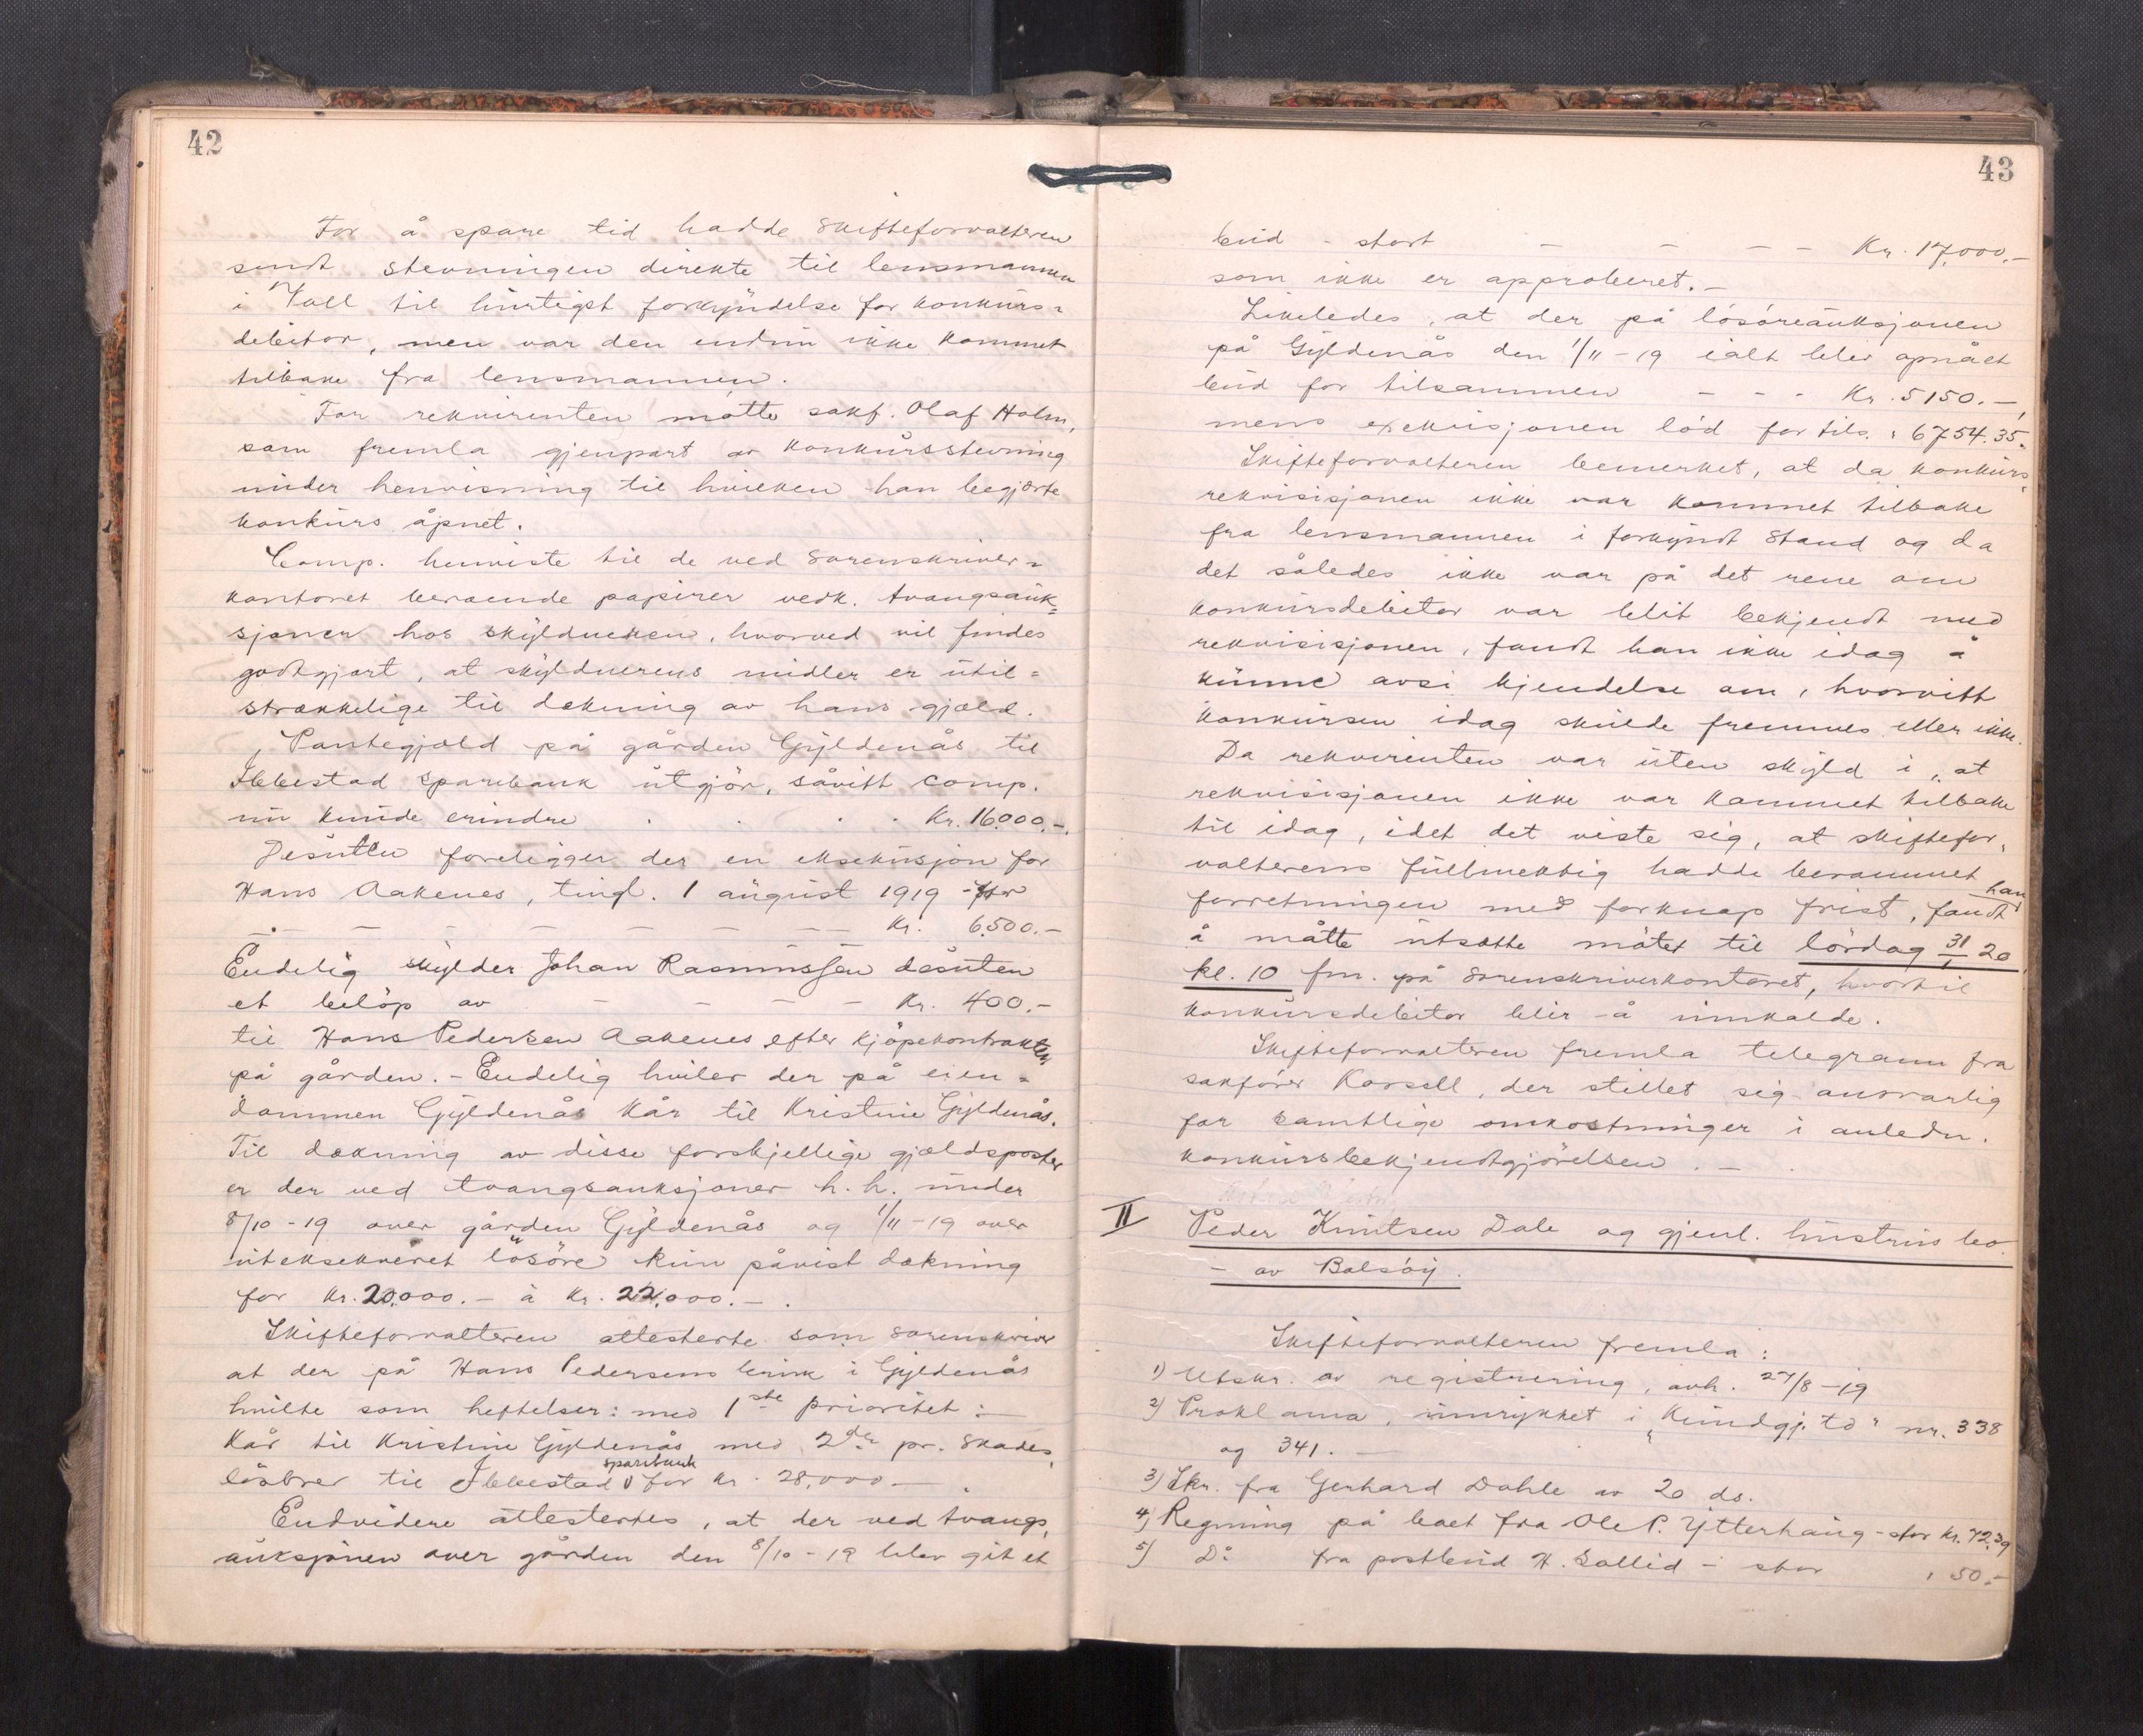 42
For å spare tid hadde skifteforvalteren
sendt stevningen direkte til lensmannen
i til hurtigst forkyndelse for konkurs=
debitor, men var den endnu ikke kommet
tilbake fra lensmannen.
For rekvirenten møtte sakf. Olaf Holm,
som fremla gjenpart av konkursstevning
under henvisning til hvilken han begjærte
konkurs åpnet.
Comp. henviste til de ved sorenskriver=
kontoret beroende papirer vedk. tvangsauk=
sjoner hos skyldneren, hvorved vil findes
godtgjort, at skyldnerens midler er util=
strækkelige til dækning av hans gjæld.
Pantegjæld på gården Gyldenås til
Ibbestad sparebank utgjør, såvitt comp.
nu kunde erindre . . . . Kr. 16.000.-.
Desuten foreligger der en eksekusjon for
Hans Aakenes, tingl. 1 august 1919 - for
— — — — — — — Kr. 6.500.-
Endelig skylder Johan Rasmussen desuten
et beløp av — — — — Kr. 400.-
til Hans Pedersen Aakenes efter kjøpekontrakten
på gården. - Endelig hviler der på eien=
dommen Gyldenås kår til Kristine Gyldenås.
Til dækning av disse forskjellige gjældsposter
er der ved tvangsauksjoner h. h. under
8/10 - 19 over gården Gyldenås og 1/11 - 19 over
uteksekveret løsøre kun påvist dækning
for Kr. 20.000.- à Kr. 22.000.-.
Skifteforvalteren attesterte som sorenskriver
at der på Hans Pedersens bruk i Gyldenås
hvilte som heftelser: med 1ste prioritet:
Kår til Kristine Gyldenås, med 2den pr. skades
løsbrev til Ibbestad sparebank for kr. 28.000.—
Endvidere attestertes, at der ved tvangs,
auksjonen over gården den 8/10 - 19 blev git et
43
bud - stort — — — — Kr. 17.000.-
som ikke er approberet. -
Likeledes, at der på løsøreauksjonen
på Gyldenås den 1/11 - 19 ialt blev opnået
bud for tilsammen - - - Kr. 5150.-,
mens eksekusjonen lød for tils. " 6754.35.
Skifteforvalteren bemerket, at da konkurs,
rekvisisjonen ikke var kommet tilbake
fra lensmannen i forkyndt stand og da
det således ikke var på det rene om
konkursdebitor var blit bekjendt med
rekvisisjonen, fandt han ikke idag å
kunne avsi kjendelse om, hvorvitt
konkursen idag skulde fremmes eller ikke.
Da rekvirenten var uten skyld i, at
rekvisisjonen ikke var kommet tilbake
til idag, idet det viste sig, at skiftefor,
valterens fullmektig hadde berammet
forretningen med forknap frist, fandt han
å måtte utsætte møtet til lørdag 31/1 20
kl. 10 fm. på sorenskriverkontoret, hvortil
konkursdebitor blir å innkalde.
Skifteforvalteren fremla telegram fra
sakfører Karsell, der stillet sig ansvarlig
for samtlige omkostninger i anledn.
konkursbekjendtgjørelsen. -
II Peder Knutsen Dale og gjenl. hustrus bo
- av Balsøy.
Skifteforvalteren fremla:
1) Utskr. av registrering, avh. 27/8 - 19
2) Proklama, innrykket i "Kundgj. td" nr. 338
og 341. —
3) Skr. fra Gerhard Dahle av 20 ds.
4) Regning på boet fra Ole P. Ytterhaug - stor Kr. 72.39
5) Do fra postbud H. Sollid - stor " 50.-